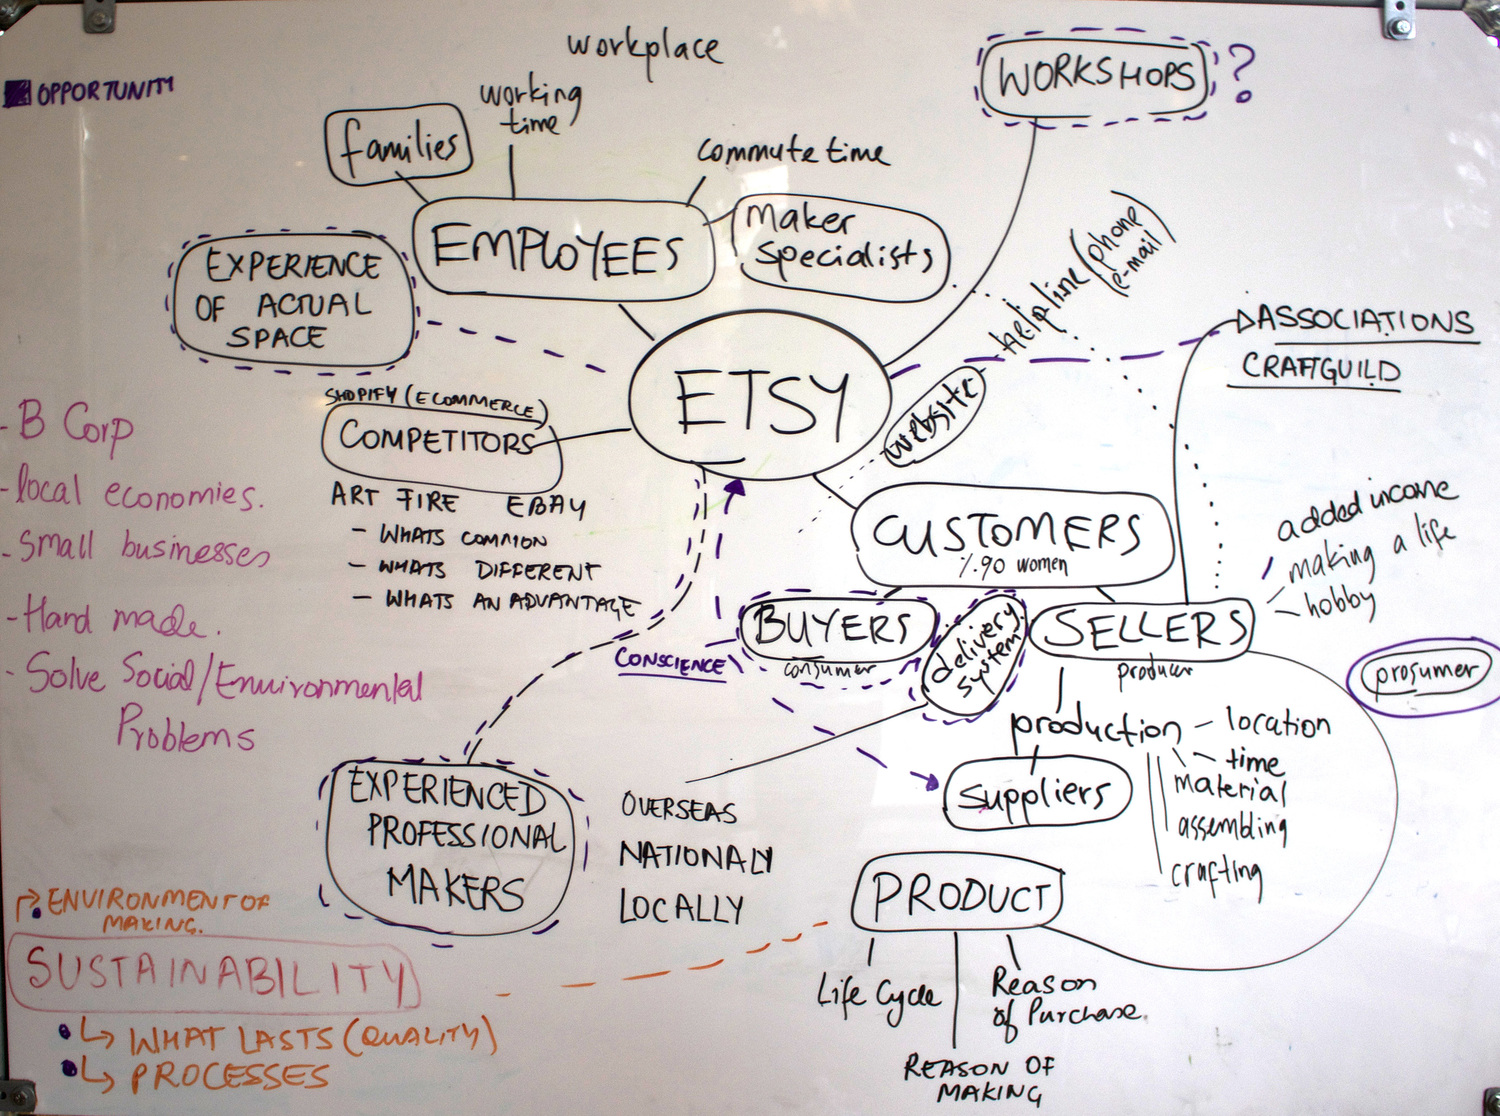 workplace
OPPORTUNITY
working
time
families
commute time
WORKSHOPS ?
EMPLOYEES
maker
specialists
EXPERIENCE
OF ACTUAL
SPACE
helpline (phone
e-mail)
ASSOCIATIONS
CRAFTGUILD
ETSY
website
SHOPIFY (ECOMMERCE)
COMPETITORS
ART FIRE EBAY
- WHATS COMMON
- WHATS DIFFERENT
- WHATS AN ADVANTAGE
- B Corp
- local economies.
- Small businesses
- Hand made.
- Solve Social/Environmental
Problems
CUSTOMERS
%.90 women
BUYERS
consumer
CONSCIENCE
delivery
system
SELLERS
producer
added income
making a life
- hobby
prosumer
production - location
- time
material
assembling
crafting
suppliers
EXPERIENCED
PROFESSIONAL
MAKERS
OVERSEAS
NATIONALY
LOCALLY
PRODUCT
Life Cycle
Reason
of Purchase.
REASON OF
MAKING
ENVIRONMENT OF
MAKING.
SUSTAINABILITY
WHAT LASTS (QUALITY)
PROCESSES